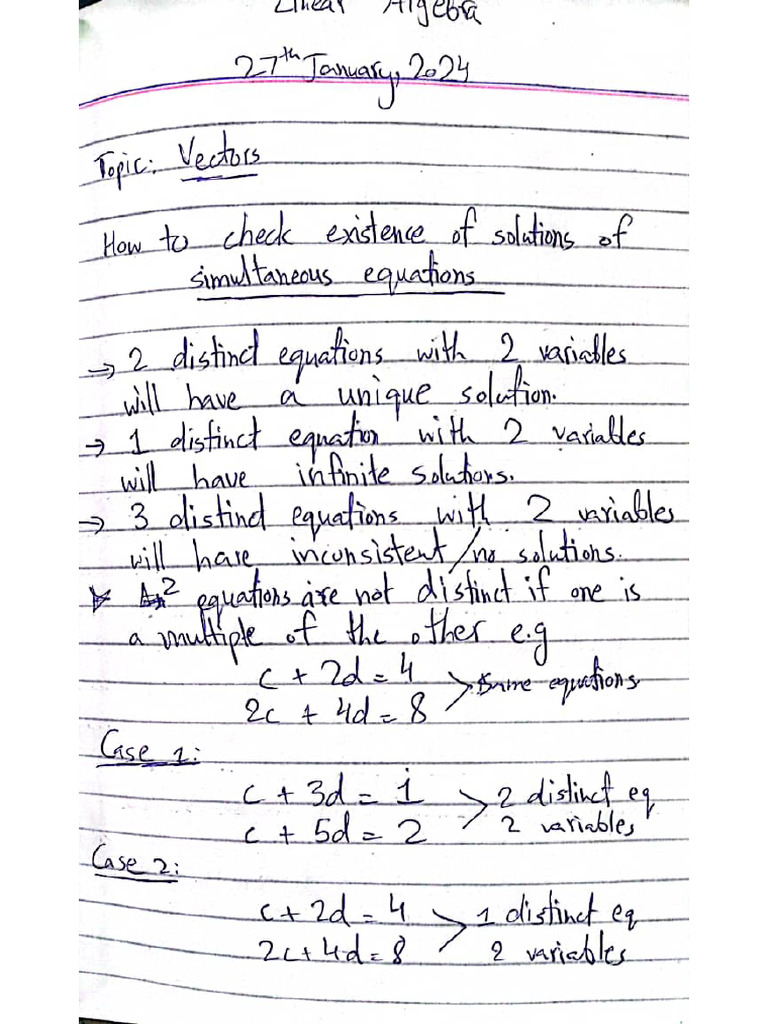 Linear Algebra
27th January, 2024
Topic: Vectors
How to check existence of solutions of
simultaneous equations
→ 2 distinct equations with 2 variables
will have a unique solution.
→ 1 distinct equation with 2 variables
will have infinite solutions.
→ 3 distinct equations with 2 variables
will have inconsistent/no solutions.
2 equations are not distinct if one is
a multiple of the other e.g
c + 2d = 4 > Same equations
2c + 4d = 8
Case 1:
c + 3d = 1 > 2 distinct eq
c + 5d = 2 2 variables
Case 2:
c + 2d = 4 > 1 distinct eq
2c + 4d = 8 2 variables